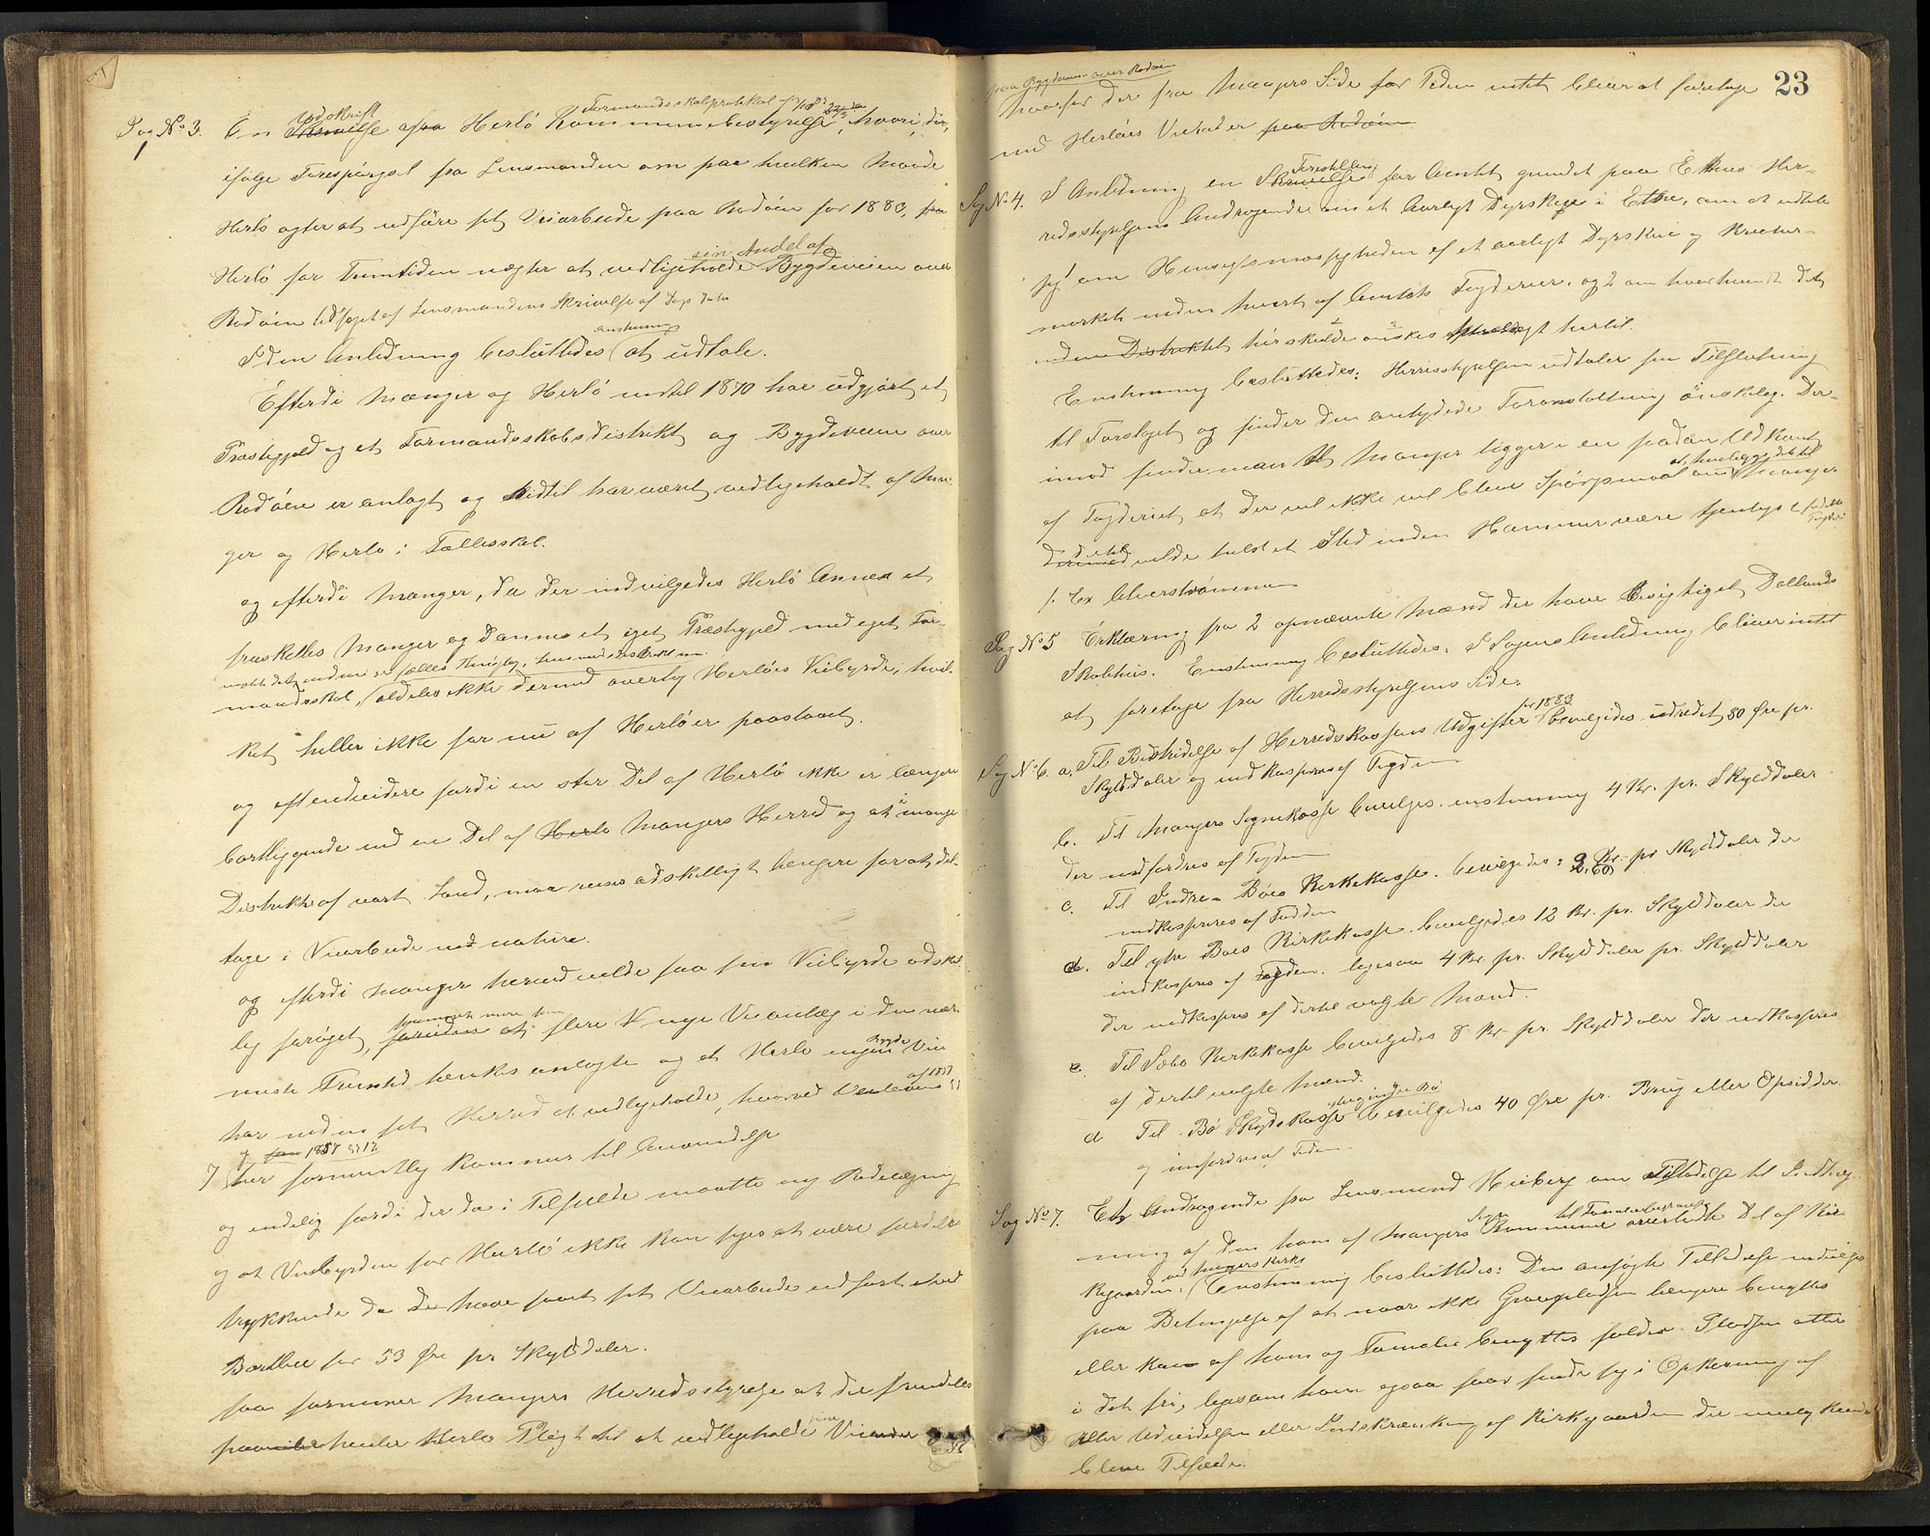 Sag No 3. En Udskrift af Herlö Formandsskabsprotokol, hvori, der,
ifølge Forespørgsel fra Lensmanden om paa hvilken Maade
Herlö agter at udföre sit Veiarbeide paa Radöen for 1883,
Herlö for Fremtiden nægter at vedligeholde sin Andel af Bygdeveien over
Radöen ledsaget af Lensmandens Skrivelse af Dags Dato
I den Anledning besluttedes enstemmig at udtale.
Efterdi Manger og Herlö indtil 1870 har udgjort et
Præstegjeld og et Formandsskabsdistrikt og Bygdeveien over
Radöen er anlagt og hidtil har været vedligeholdt af Man-
ger og Herlö i Fællesskab.
og efterdi Manger, da der indvilgedes Herlö Annex at
fraskilles Manger og danne et eget Præstegjeld med eget For-
mandsskab, aldeles ikke dermed overtog Herlöes Veibyrde, hvil-
ket heller ikke för nu af Herlö er paastaaet.
og efterdi fordi en stor Del af Herlö ikke er længere
bortliggende end en Del af Mangers Herred og at i mange
Distrikter af vort Land, maa reises adskilligt længere for at del-
tage i Veiarbeide in natura.
og efterdi Manger herved vilde faa sin Veibyrde adskil
lig forøget, at flere nye Veianlæg i den nær
meste Fremtid tænkes anlagte og at Herlö ingen Bygde Vei
har inden sit Herred at vedligeholde, hvorved Veiloven af 1851
her formentlig kommer til Anvendelse
og endelig fordi der da i Tilfælde maatte ny Rodelægning
og at Veibyrden for Herlö ikke kan siges at være særdeles
trykkende da de have faaet sit Veiarbeide udført ved
Bortleie for 53 Øre pr Skylddaler.
saa formener Mangers Herredsstyrelse at det fremdeles
er Herlö Pligt at vedligeholde sine Veie
23
paa Bygdeveien over Radöen
hvorfor der fra Mangers Side for Tiden intet bliver at foretage
med Herlöes Veiroder paa Radöen
Sag No 4. I Anledning en Forestilling for Amtet grundet paa Ethne Her-
redsstyrelses Andragende om et aarligt Dyrskue i Ethne, om at udtale
sig om Hensigtsmæssigheden af et aarligt Dyrskue og Kreatur-
marked inden hvert af Amtets Fogderier, og 2 om hvorhendt det
inden Distriktet her skulde ønskes henlagt hertil.
Enstemmig besluttedes: Herredsstyrelsen udtaler sin Tilslutning
til Forslaget og finder den antydede Foranstaltning önskelig. Der-
imod finder man at Manger ligger i en saadan Udkant
af Fogderiet at der vel ikke vil blive Spörgsmaal om at henlægge det til Manger
dertil vilde helst et Sted inden Hammer være tjenligst
f. Ex Alverströmmen
Sag No 5 Erklæring fra 2 opnævnte Mænd der have besigtiget Dallands
Skolehus. Enstemmig besluttedes: I Sagens Anledning bliver intet
at foretage fra Herredsstyrelsens Side.
Sag No 6. a. Til Bestridelse af Herredskassens Udgifter for 1883 bevilgedes udredet 80 Øre pr.
Skylddaler og indkasseres af Fogden
b. Til Mangers Sognekasse bevilges enstemmig 4 Kr. pr. Skylddaler
der indfordres af Fogden
c. Til Indre Böes Kirkekasse bevilgedes: 2,60 pr Skylddaler der
indkasseres af Fogden
d. Til ytre Böes Kirkekasse bevilgedes 12 Kr. pr. Skylddaler der
indkasseres af Fogden. ligesaa 4 Kr. pr. Skylddaler pr. Skylddaler
der indkasseres af dertil valgte Mænd.
e. Til Sæbö Kirkekasse bevilgedes 8 Kr pr. Skylddaler der indkasseres
af dertil valgte Mænd.
d Til Bö Skydskasse bevilgedes 40 Øre pr. Brug eller Opsidder.
og indfordres af Fogden
Sag No 7. Et Andragende fra Lensmand Heiberg om Tilladelse til Indheg-
ning af den ham af Mangers Kommune overladte Del af Kir-
kegaarden ved Mangers Kirke. Enstemmig besluttedes: Den ansögte Tilladelse indvilges
paa Betingelse af at naar ikke Gravpladsen længere benyttes
eller kan af ham og Familie benyttes falder Pladsen atter
i det fri, ligesom han ogsaa faar finde sig i Opkjørning af
eller Udvidelsen eller Indskrænkning af Kirkegaarden der mulig kunde
blive Tilfælde.